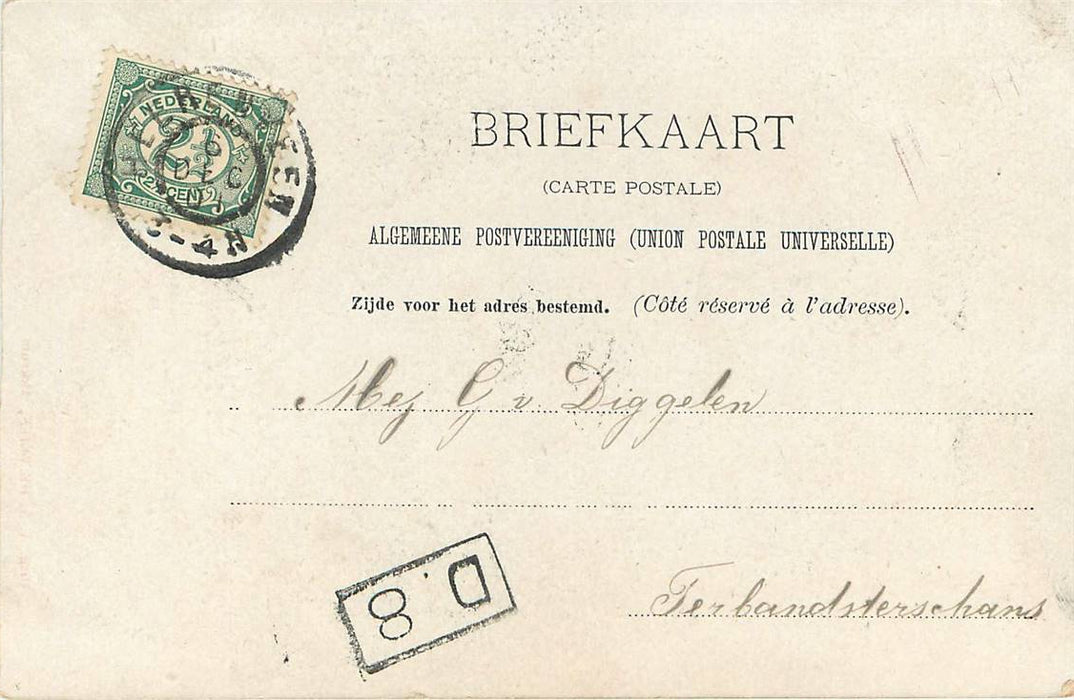 NEDERLAND
2½
2½ CENT 2½
HEERENVEEN
6
DEC
3-4N
BRIEFKAART
(CARTE POSTALE)
ALGEMEENE POSTVEREENIGING (UNION POSTALE UNIVERSELLE)
Zijde voor het adres bestemd. (Côté réservé à l'adresse).
Mej G v. Diggelen
Terbandsterschans
D. 8